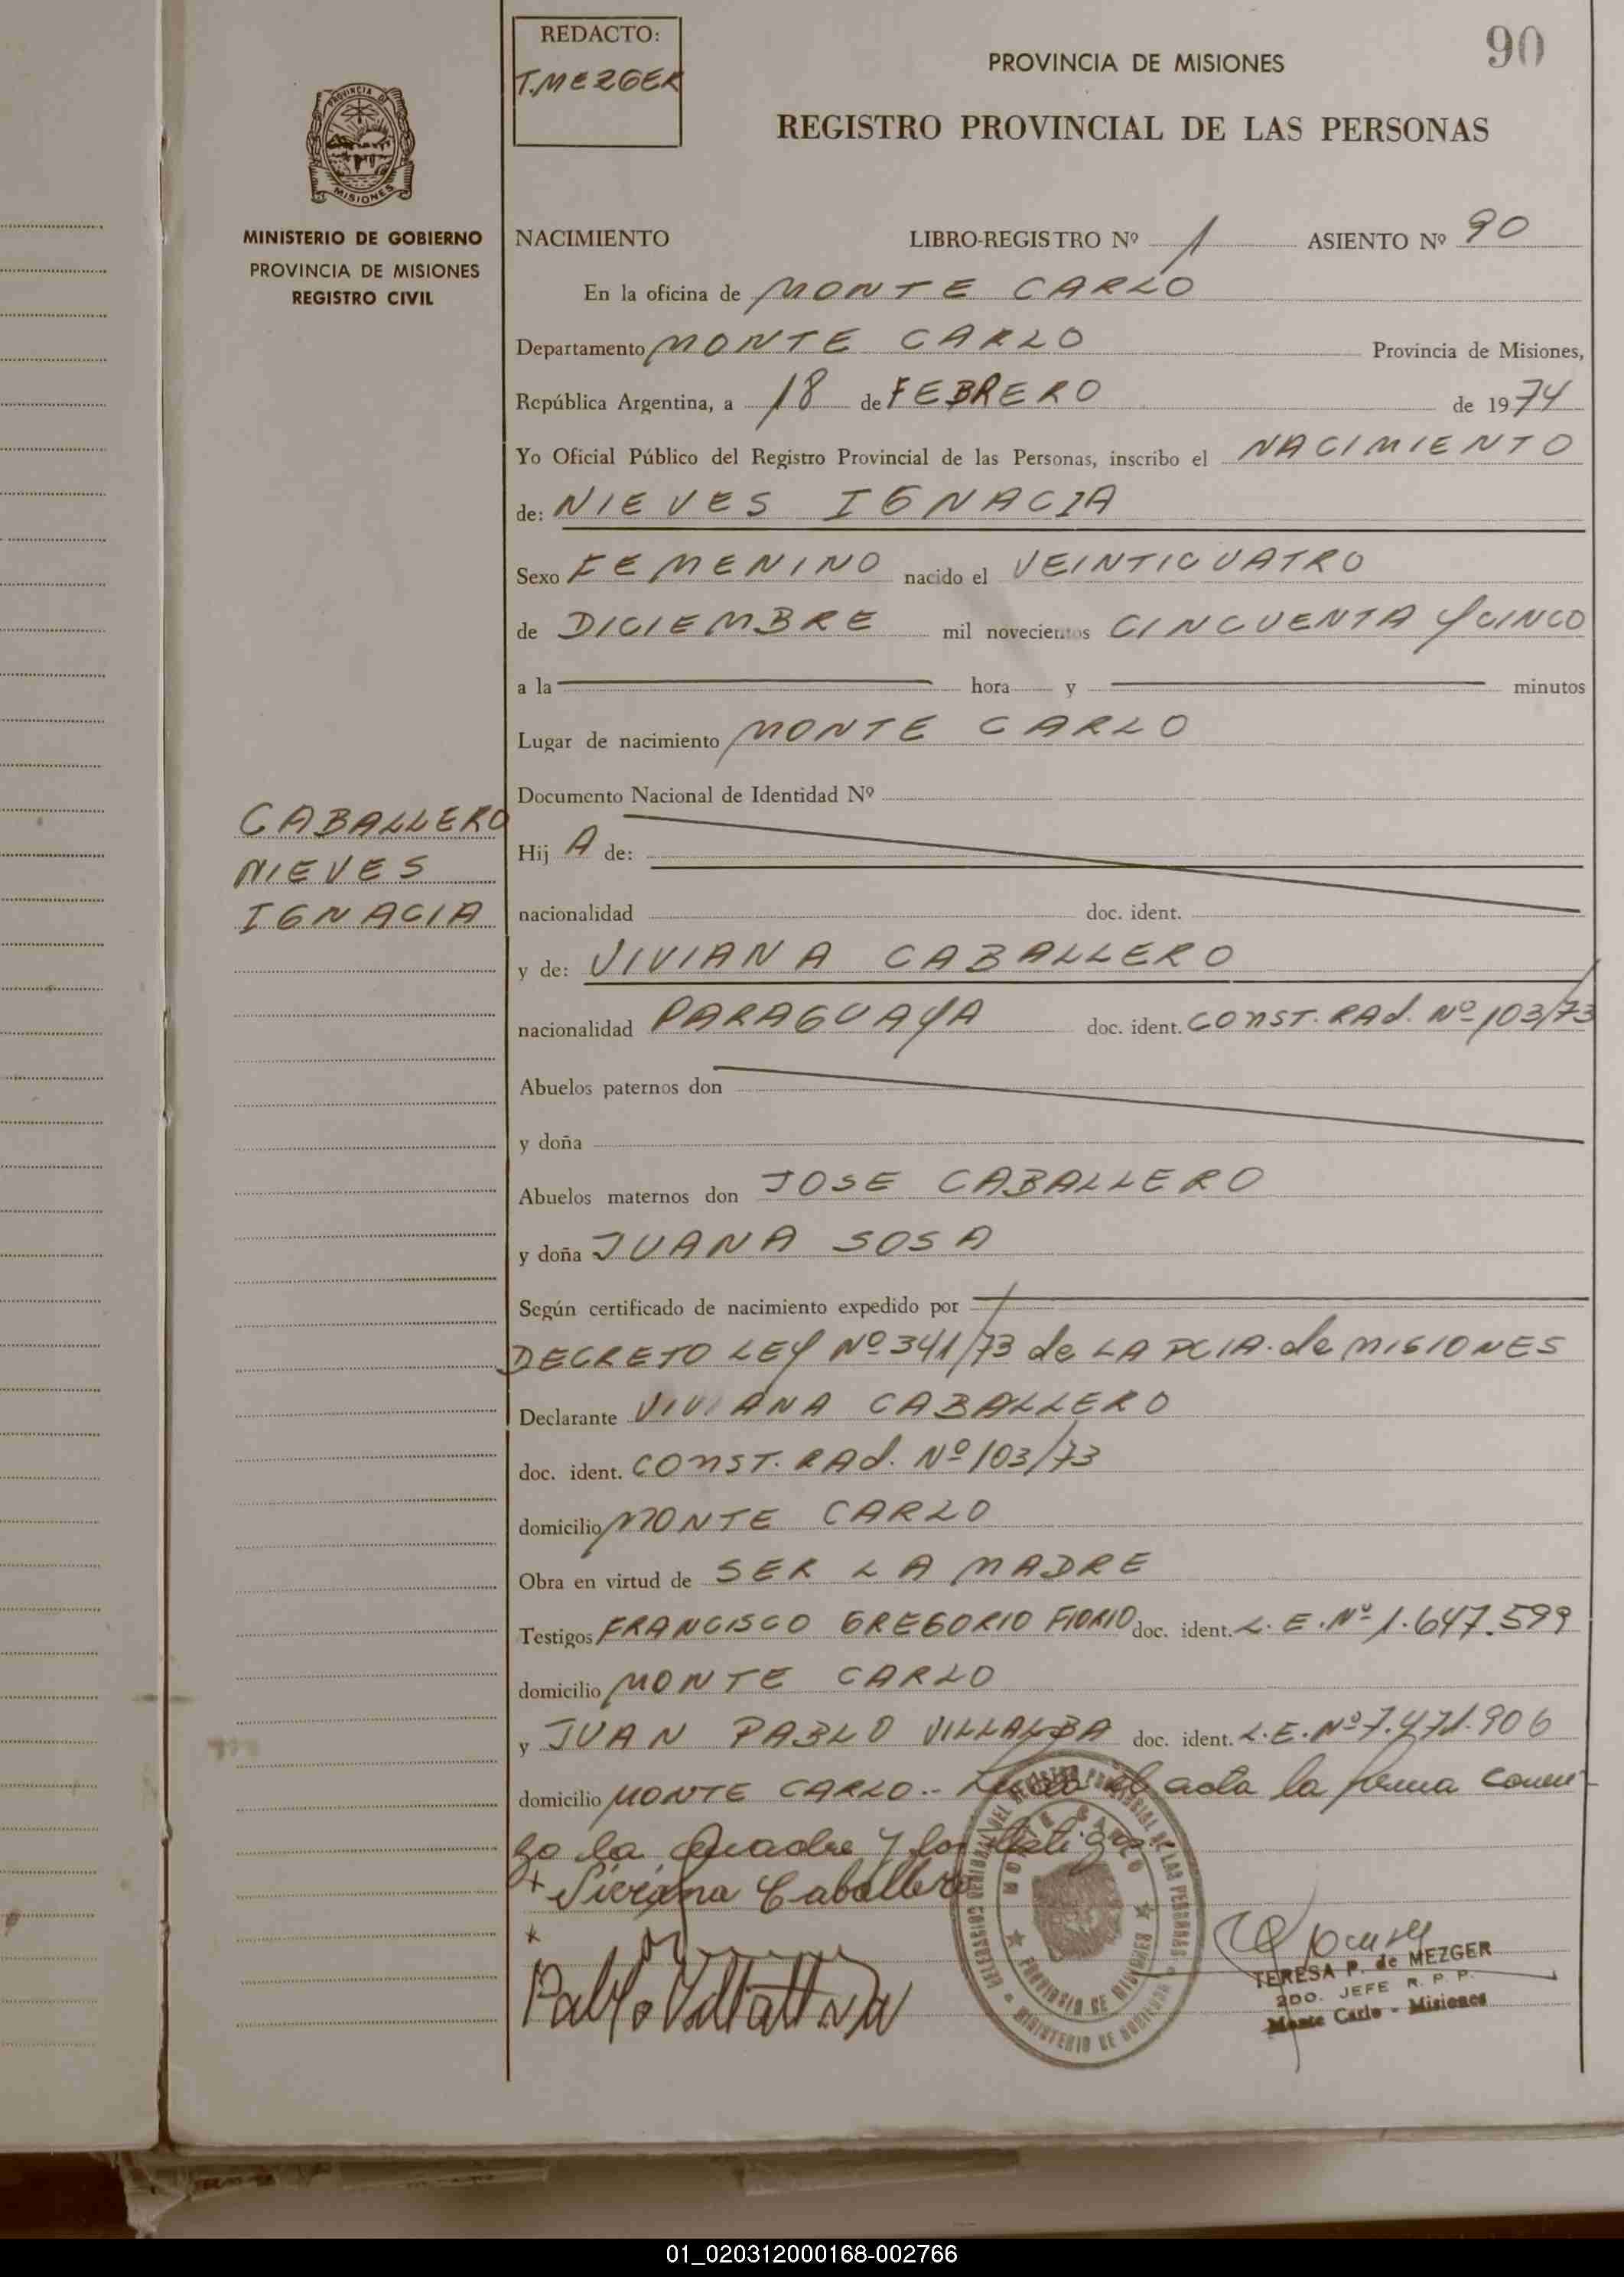 REDACTO:
T. MEZGER
90
PROVINCIA DE MISIONES
REGISTRO PROVINCIAL DE LAS PERSONAS
PROVINCIA DE
MISIONES
MINISTERIO DE GOBIERNO
PROVINCIA DE MISIONES
REGISTRO CIVIL
NACIMIENTO LIBRO-REGISTRO Nº 1 ASIENTO Nº 90
En la oficina de MONTE CARLO
Departamento MONTE CARLO Provincia de Misiones,
República Argentina, a 18 de FEBRERO de 1974
Yo Oficial Público del Registro Provincial de las Personas, inscribo el NACIMIENTO
de: NIEVES IGNACIA
Sexo FEMENINO nacido el VEINTICUATRO
de DICIEMBRE mil novecientos CINCUENTA Y CINCO
a la hora y minutos
Lugar de nacimiento MONTE CARLO
Documento Nacional de Identidad Nº
CABALLERO
NIEVES
IGNACIA
Hij A de:
nacionalidad doc. ident.
y de: VIVIANA CABALLERO
nacionalidad PARAGUAYA doc. ident. CONST. RAd. Nº 103/73
Abuelos paternos don
y doña
Abuelos maternos don JOSE CABALLERO
y doña JUANA SOSA
Según certificado de nacimiento expedido por
DECRETO LEY Nº 341/73 de LA PCIA. de MISIONES
Declarante VIVIANA CABALLERO
doc. ident. CONST. RAd. Nº 103/73
domicilio MONTE CARLO
Obra en virtud de SER LA MADRE
Testigos FRANCISCO GREGORIO FIORIO doc. ident. L.E. Nº 1.647.599
domicilio MONTE CARLO
y JUAN PABLO VILLALBA doc. ident. L.E. Nº 7.471.906
domicilio MONTE CARLO.- el acta la firma conmi-
go la Madre y los testigos
+ Viviana Caballero
MONTE CARLO
PROVINCIA DE MISIONES
MINISTERIO DE GOBIERNO
TERESA P. de MEZGER
2DO. JEFE R. P. P.
Monte Carlo - Misiones
01_020312000168-002766